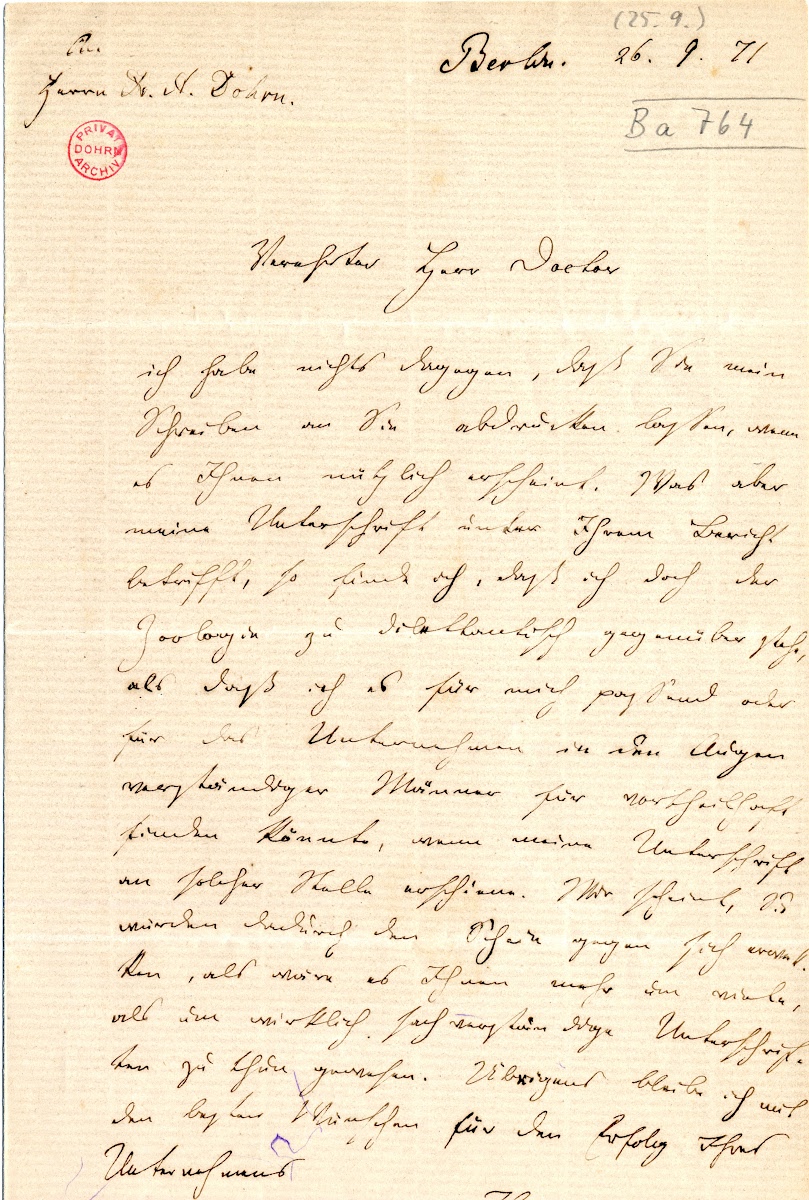 (25. 9.)
An
Berlin. 26. 9. 71
Herrn Dr. A. Dohrn.
Ba 764
PRIVAT
DOHRN
ARCHIV
Verehrter Herr Doctor
ich habe nichts dagegen, daß Sie mein
Schreiben an Sie abdrucken lassen, wenn
es Ihnen nützlich erscheint. Was aber
meine Unterschrift unter Ihrem Bericht
betrifft, so finde ich, daß ich doch der
Zoologie zu dilettantisch gegenüber stehe,
als daß ich es für mich passend oder
für das Unternehmen in den Augen
verständiger Männer für vortheilhaft
finden könnte, wenn meine Unterschrift
an solcher Stelle erschiene. Mir scheint, Sie
würden dadurch den Schein gegen sich erwek-
ken, als wäre es Ihnen mehr um viele,
als um wirklich sachverständige Unterschrif-
ten zu thun gewesen. Übrigens bleibe ich mit
den besten Wünschen für den Erfolg Ihres
Unternehmens